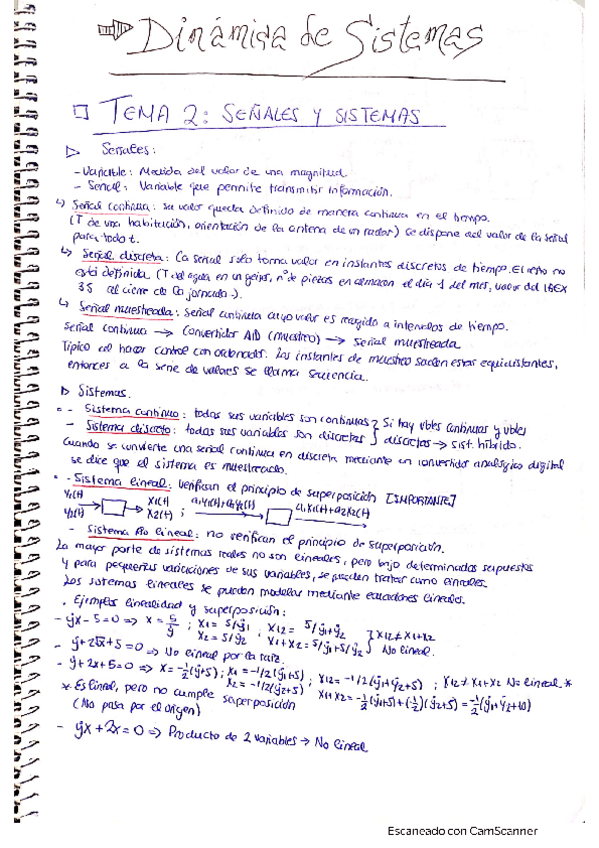 Dinámica de Sistemas
TEMA 2: SEÑALES Y SISTEMAS
Señales:
- Variable: Medida del valor de una magnitud.
- Señal: Variable que permite transmitir información.
↳ Señal continua: su valor queda definido de manera continua en el tiempo.
(T de una habitación, orientación de la antena de un radar) Se dispone del valor de la señal
para todo t.
↳ Señal discreta: La señal solo toma valor en instantes discretos de tiempo. El resto no
está definida (T del agua en un geiser, nº de piezas en almacen el día 1 del mes, valor del IBEX
35 al cierre de la jornada).
↳ Señal muestreada: Señal continua cuyo valor es recogido a intervalos de tiempo.
Señal continua → Convertidor A/D (Muestreo) → Señal muestreada
Típico al hacer control con ordenador. Los instantes de muestreo suelen estar equidistantes,
entonces a la serie de valores se llama secuencia.
Sistemas.
- Sistema continuo: todas sus variables son continuas } Si hay vbles continuas y vbles
- Sistema discreto: todas sus variables son discretas } discretas → sist. híbrido.
Cuando se convierte una señal continua en discreta mediante un convertidor analógico digital
se dice que el sistema es muestreado.
- Sistema lineal: verifican el principio de superposición [IMPORTANTE]
Y1(t) X1(t) a1Y1(t)+a2Y2(t) a1X1(t)+a2X2(t)
Y2(t) X2(t) ;
- Sistema No lineal: no verifican el principio de superposición.
La mayor parte de sistemas reales no son lineales, pero bajo determinados supuestos
y para pequeñas variaciones de sus variables, se pueden tratar como lineales.
Los sistemas lineales se pueden modelar mediante ecuaciones lineales.
. Ejemplos linealidad y superposición:
- ẏx - 5 = 0 => x = 5/ẏ ; x1 = 5/ẏ1 ; x12 = 5/ẏ1+ẏ2 } x12 ≠ x1+x2
x2 = 5/ẏ2 x1+x2 = 5/ẏ1+5/ẏ2 } No lineal.
- ẏ+2√x+5=0 => No lineal por la raíz.
- ẏ+2x+5=0 => x = -1/2(ẏ+5) ; x1 = -1/2(ẏ1+5) ; x12 = -1/2(ẏ1+ẏ2+5) ; x12 ≠ x1+x2 No lineal *
x2 = -1/2(ẏ2+5) x1+x2 = -1/2(ẏ1+5)+(-1/2)(ẏ2+5) = -1/2(ẏ1+ẏ2+10)
* Es lineal, pero no cumple superposición
(No pasa por el origen)
- ẏx+2x=0 => Producto de 2 variables → No lineal
Escaneado con CamScanner